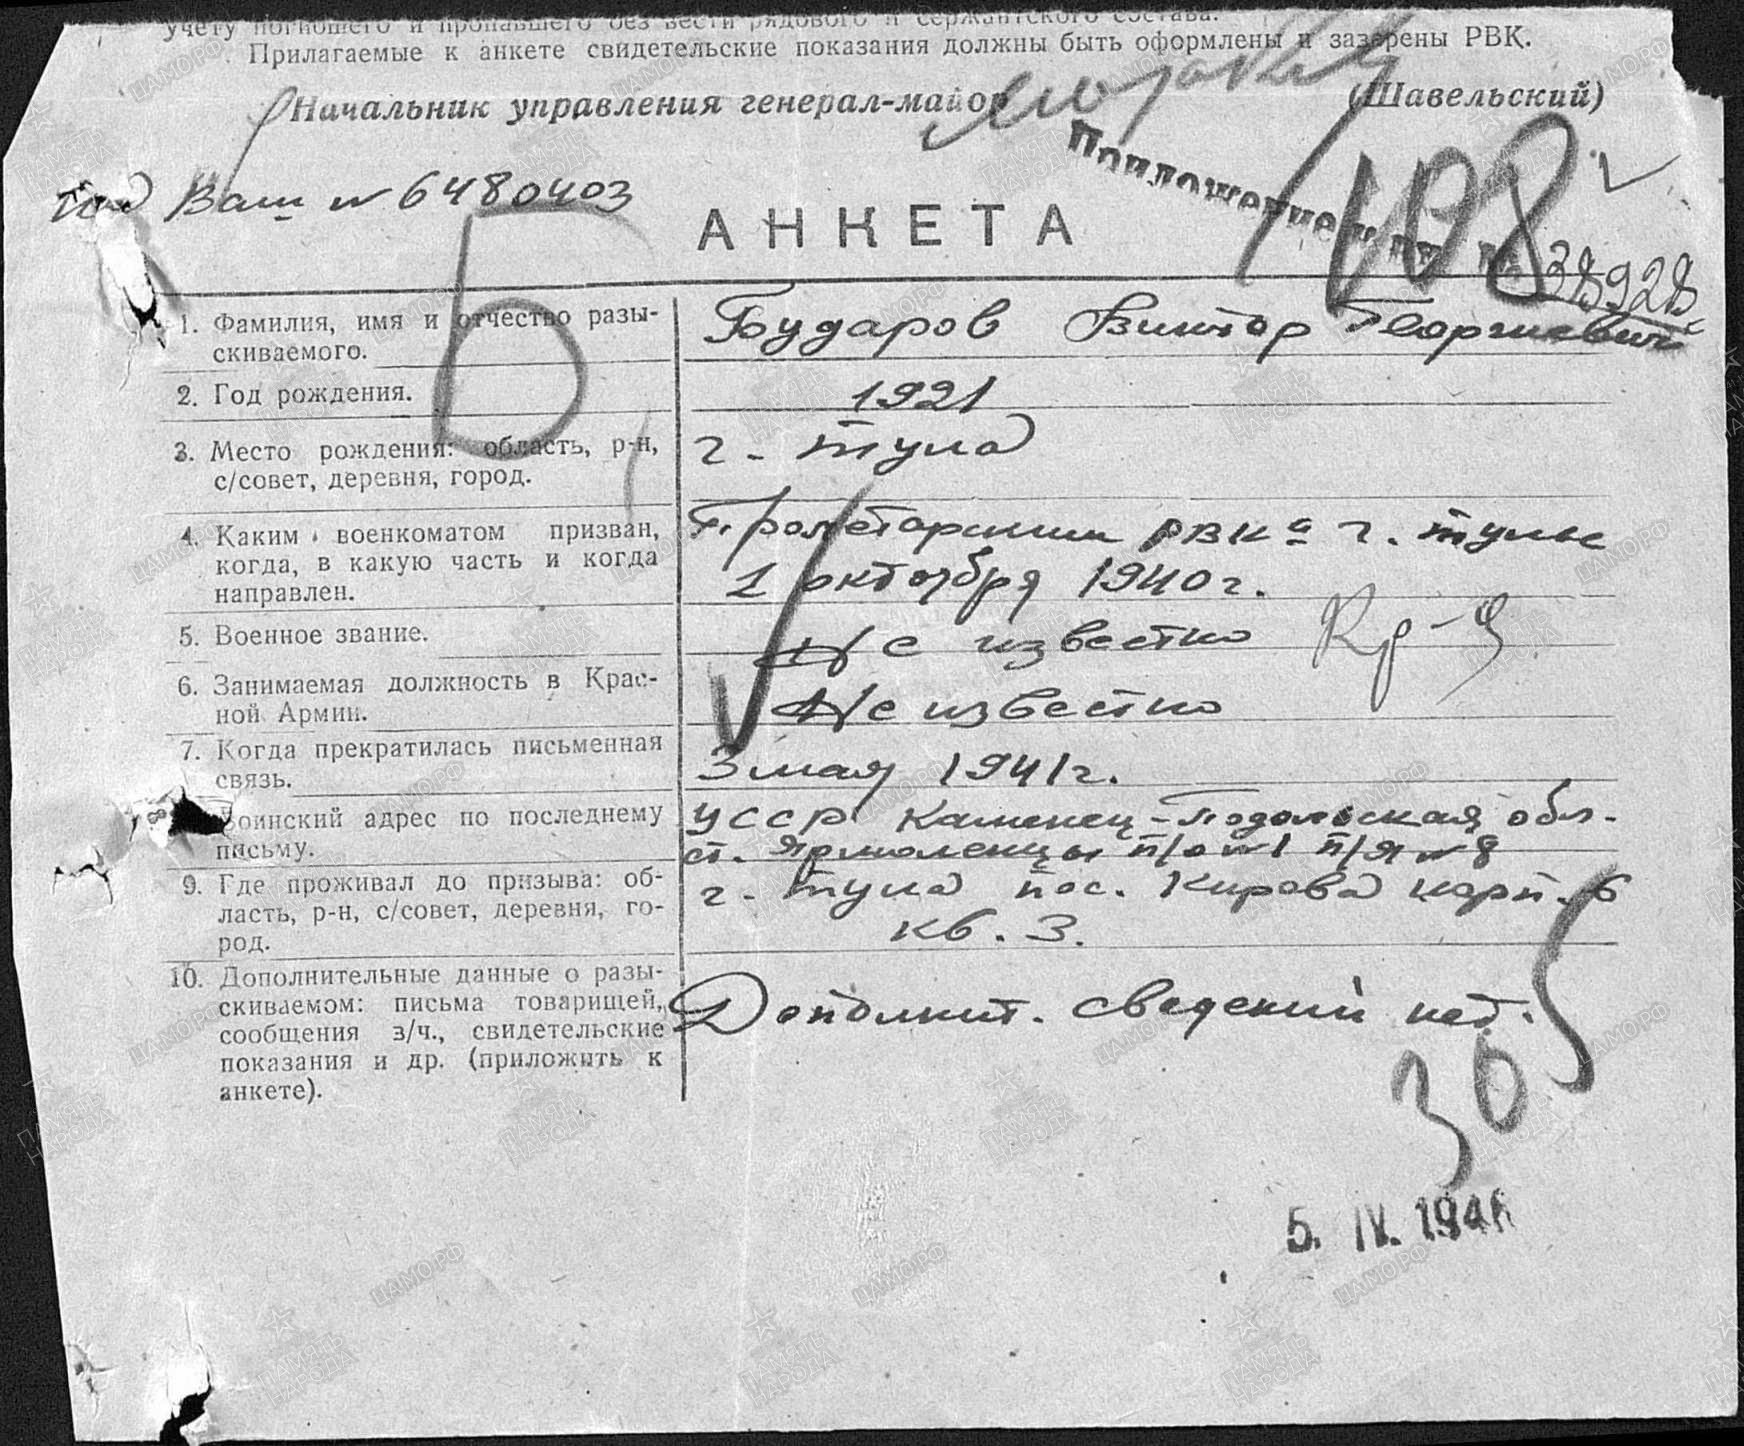 учету погибшего и пропавшего без вести рядового и сержантского состава.
Прилагаемые к анкете свидетельские показания должны быть оформлены и заверены РВК.
Начальник управления генерал-майор (Шавельский)
Ваш № 6480403
Приложение
108
38928
АНКЕТА
Б
1. Фамилия, имя и отчество разы-
скиваемого.
Бударов Виктор Георгиевич
2. Год рождения.
1921
3. Место рождения: область, р-н,
с/совет, деревня, город.
г. Тула
4. Каким военкоматом призван,
когда, в какую часть и когда
направлен.
Пролетарским РВКа г. Тулы
1 октября 1940 г.
5. Военное звание.
Не известно
Кр-ц
6. Занимаемая должность в Крас-
ной Армии.
Не известно
7. Когда прекратилась письменная
связь.
3 мая 1941 г.
8
Воинский адрес по последнему
письму.
УССР Каменец-Подольская обл.
ст. Ярмоленцы п/о №1 п/я №8
9. Где проживал до призыва: об-
ласть, р-н, с/совет, деревня, го-
род.
г. Тула пос. Кирова корп. 6
кв. 3.
10. Дополнительные данные о разы-
скиваемом: письма товарищей,
сообщения з/ч., свидетельские
показания и др. (приложить к
анкете).
Дополнит. сведений нет.
30
5. IV. 194